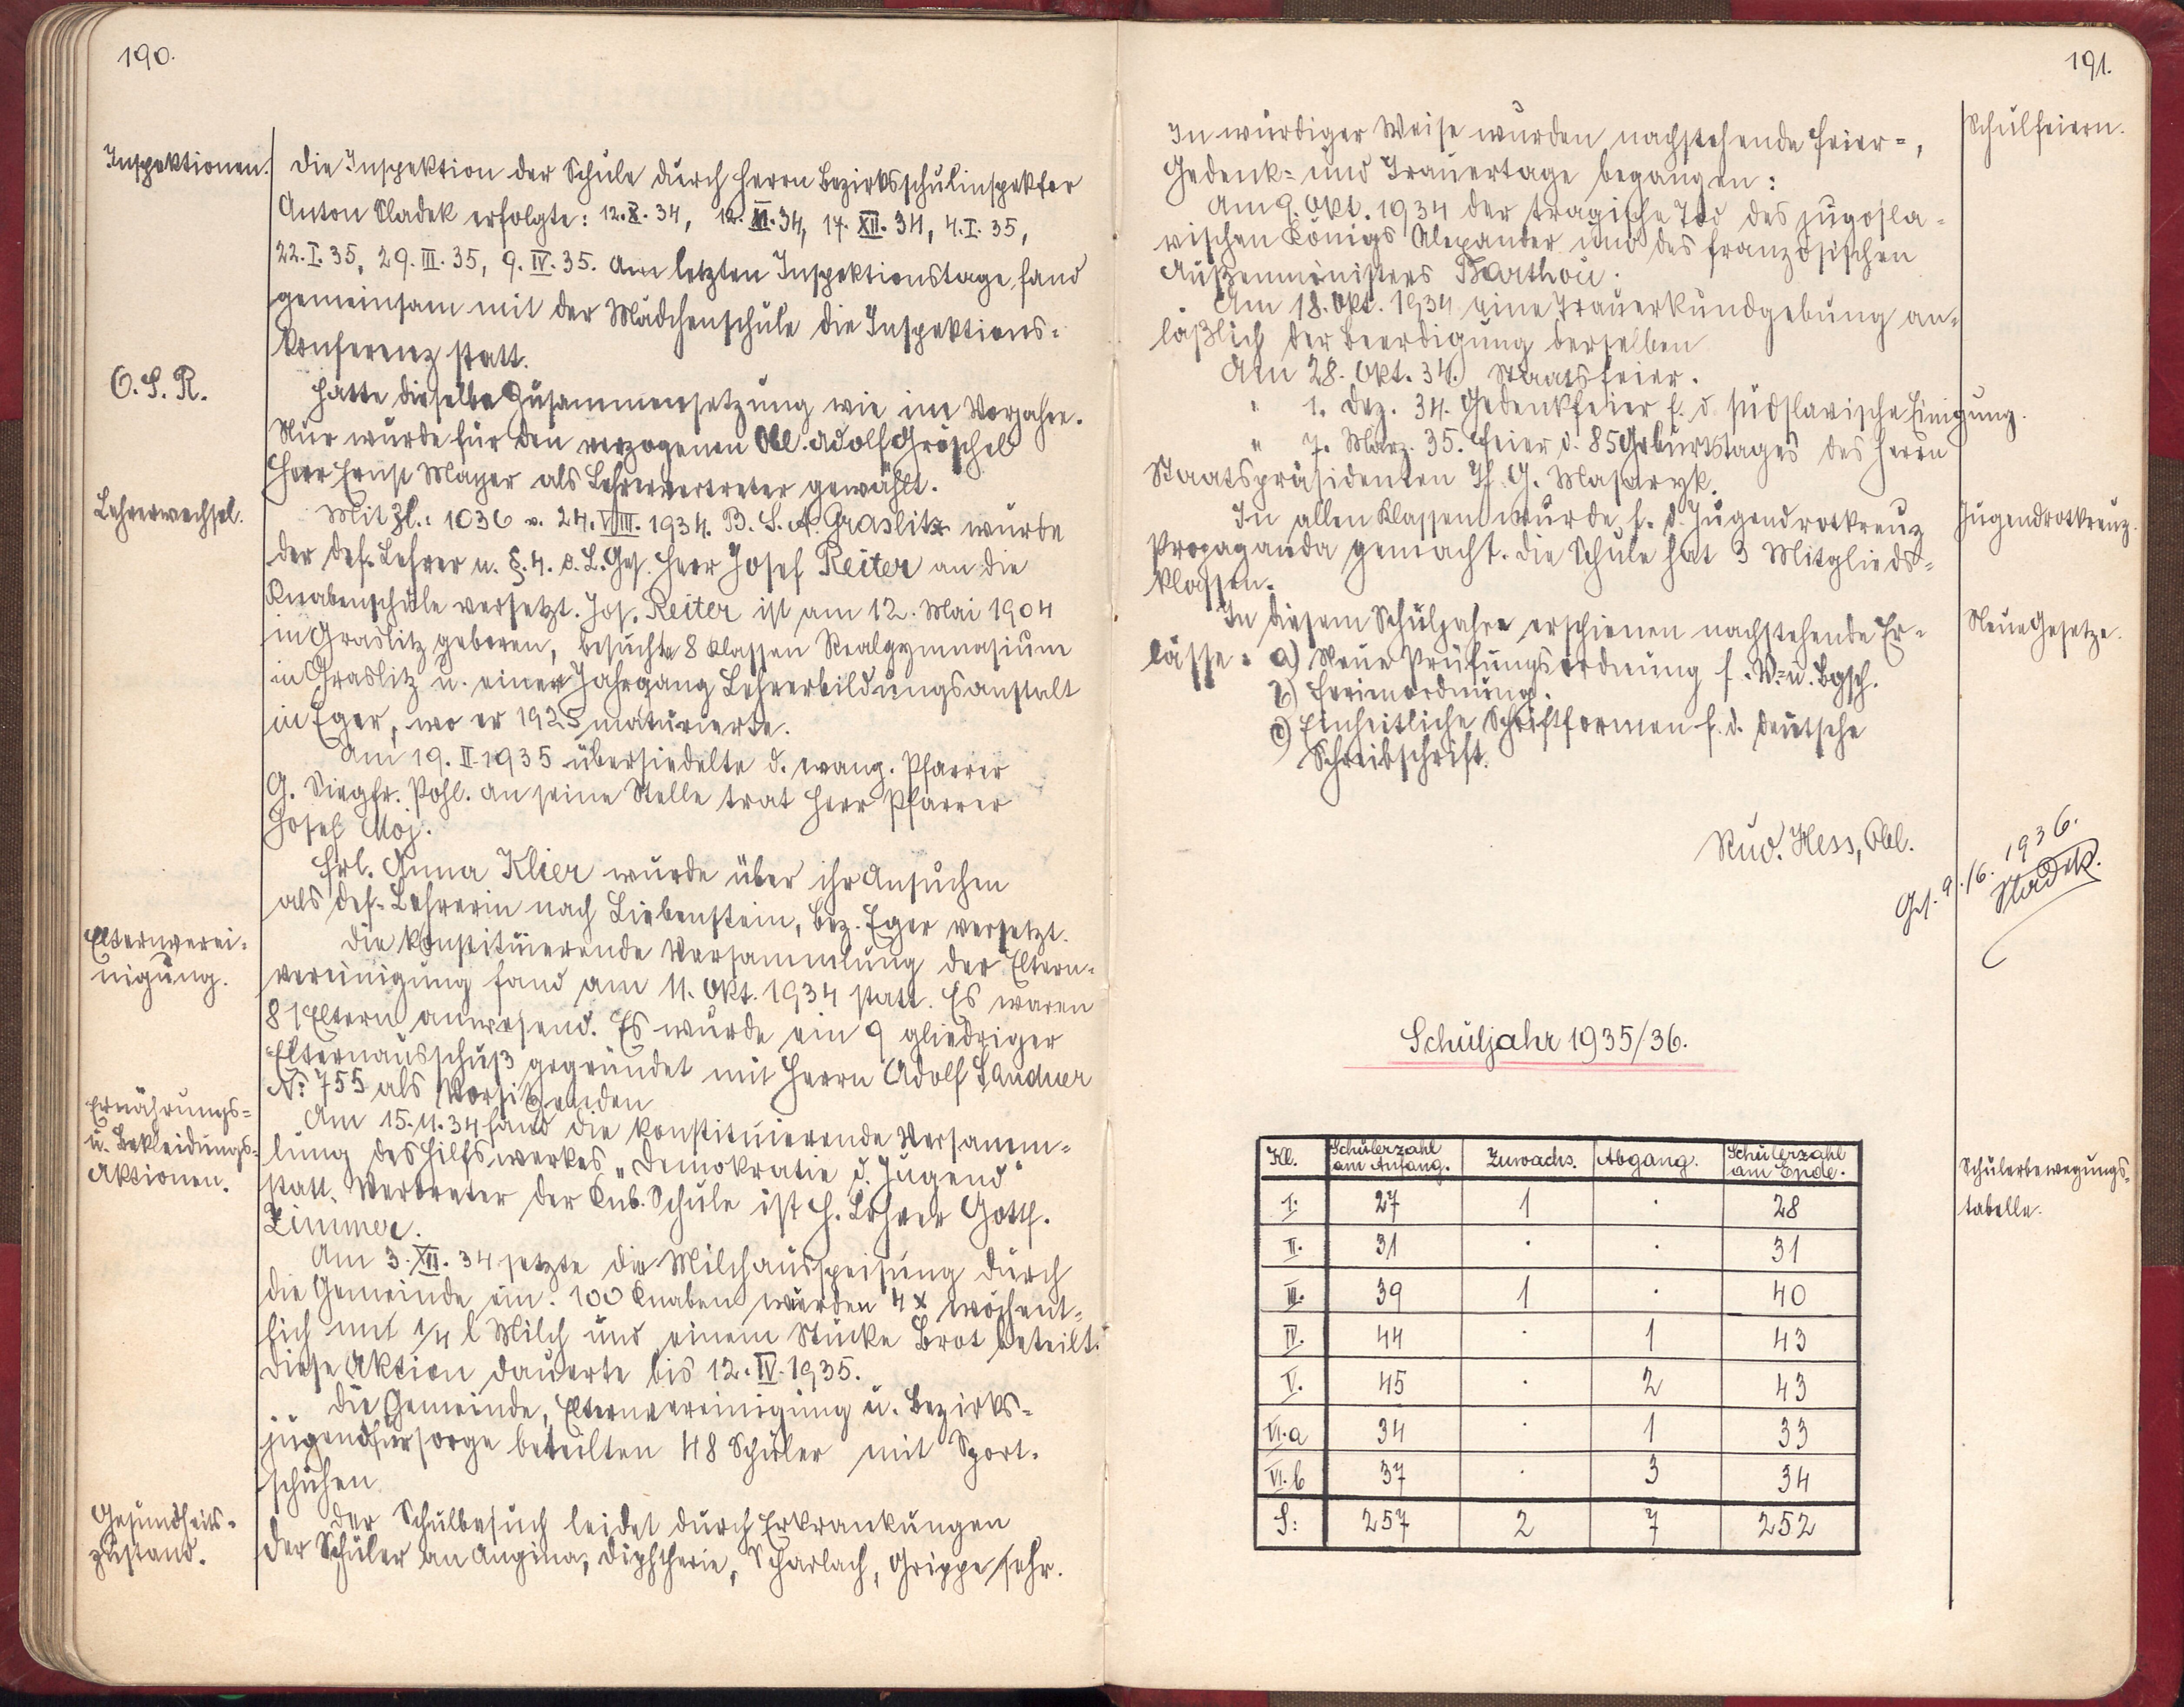 190.
Inspektionen.
Die Inspektion der Schule durch Herrn Bezirksschulinspektor
Anton Sladek erfolgte: 12.X.34, 12.XI.34, 17.XII.34, 4.I.35,
22.I.35, 29.III.35, 9.IV.35. Am letzten Inspektionstage fand
gemeinsam mit der Mädchenschule die Inspektions-
konferenz statt.
O.S.R.
Hatte dieselbe Zusammensetzung wie im Vorjahre.
Nur wurde für den verzogenen Obl. Adolf Gröschel
Herr Ernst Mayer als Lehrervertreter gewählt.
Lehrerwechsel.
Mit Zl.: 1036 v. 24.VIII.1934. B.S.A. Graslitz wurde
der def. Lehrer n. §.4. d. L.Ges. Herr Josef Reiter an die
Knabenschule versetzt. Jos. Reiter ist am 12. Mai 1904
in Graslitz geboren, besuchte 8 Klassen Realgymnasium
in Graslitz u. einen Jahrgang Lehrerbildungsanstalt
in Eger, wo er 1925 maturierte.
Am 19.II.1935 übersiedelte d. evang. Pfarrer
G. Siegfr. Pohl. An seine Stelle trat Herr Pfarrer
Josef Moj.
Frl. Anna Klier wurde über ihr Ansuchen
als def. Lehrerin nach Liebenstein, Bez. Eger versetzt.
Elternverei-
nigung.
Die konstituierende Versammlung der Eltern-
vereinigung fand am 11. Okt. 1934 statt. Es waren
81 Eltern anwesend. Es wurde ein 9 gliedriger
Elternausschuß gegründet mit Herrn Adolf Sandner
No 755 als Vorsitzenden
Ernährungs-
u. Bekleidungs-
Aktionen.
Am 15.11.34 fand die konstituierende Versamm-
lung des Hilfswerkes „Demokratie d. Jugend"
statt. Vertreter der Knb. Schule ist H. Lehrer Gotth.
Zimmer.
Am 3.XII.34 setzte die Milchausspeisung durch
die Gemeinde ein. 100 Knaben wurden 4x wöchent-
lich mit 1/4 l Milch und einem Stücke Brot beteilt.
Diese Aktion dauerte bis 12.IV.1935.
Die Gemeinde, Elternvereinigung u. Bezirks-
jugendfürsorge beteilten 48 Schüler mit Sport-
schuhen.
Gesundheits-
zustand.
Der Schulbesuch leidet durch Erkrankungen
der Schüler an Angina, Diphtherie, Scharlach, Grippe sehr.
191.
Schulfeiern.
In würdiger Weise wurden nachstehende Feier-,
Gedenk- und Trauertage begangen:
Am 9. Okt. 1934 der tragische Tod des jugosla-
vischen Königs Alexander und des französischen
Außenministers Barthou.
Am 18. Okt. 1934 eine Trauerkundgebung an-
läßlich der Beerdigung derselben
Am 28. Okt. 34. Staatsfeier.
" 1. Dez. 34. Gedenkfeier f. d. südslavische Einigung.
" 7. März. 35. Feier d. 85 Geburtstages des Herrn
Staatspräsidenten T. G. Masaryk.
Jugendrotkreuz.
In allen Klassen wurde f. d. Jugendrotkreuz
Propaganda gemacht. Die Schule hat 3 Mitglieds-
klassen.
Neue Gesetze.
In diesem Schuljahre erschienen nachstehende Er-
lässe: a) Neue Prüfungsordnung f. V.- u. Bgsch.
b) Ferienordnung.
c) Einheitliche Schriftformen f. d. deutsche
Schreibschrift.
Rud. Hess, Obl.
Ges. 9./6. 1936.
Sladek.
Schuljahr 1935/36.
Schülerbewegungs-
tabelle.
Kl. Schülerzahl am Anfang. Zuwachs. Abgang. Schülerzahl am Ende.
I. 27 1 . 28
II. 31 . . 31
III. 39 1 . 40
IV. 44 . 1 43
V. 45 . 2 43
VI.a 34 . 1 33
VI.b 37 . 3 34
S: 257 2 7 252